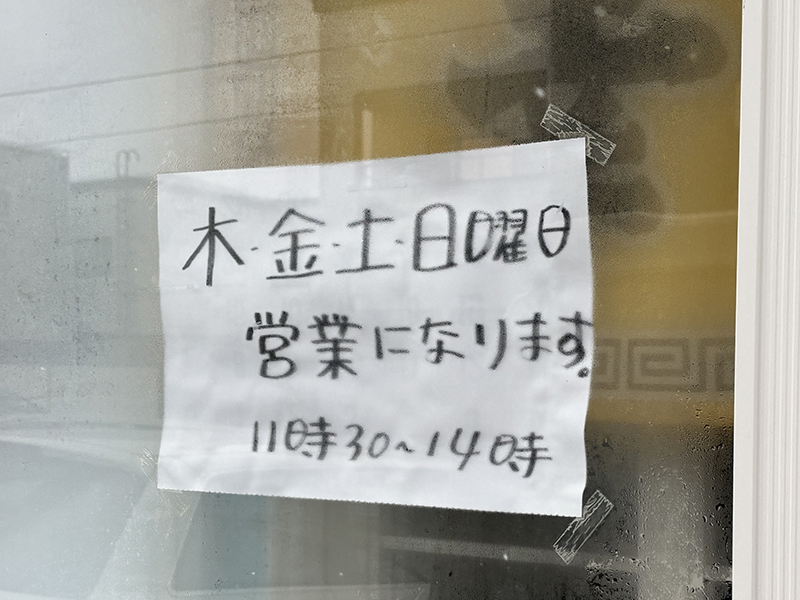 木・金・土・日曜日
営業になります。
11時30~14時